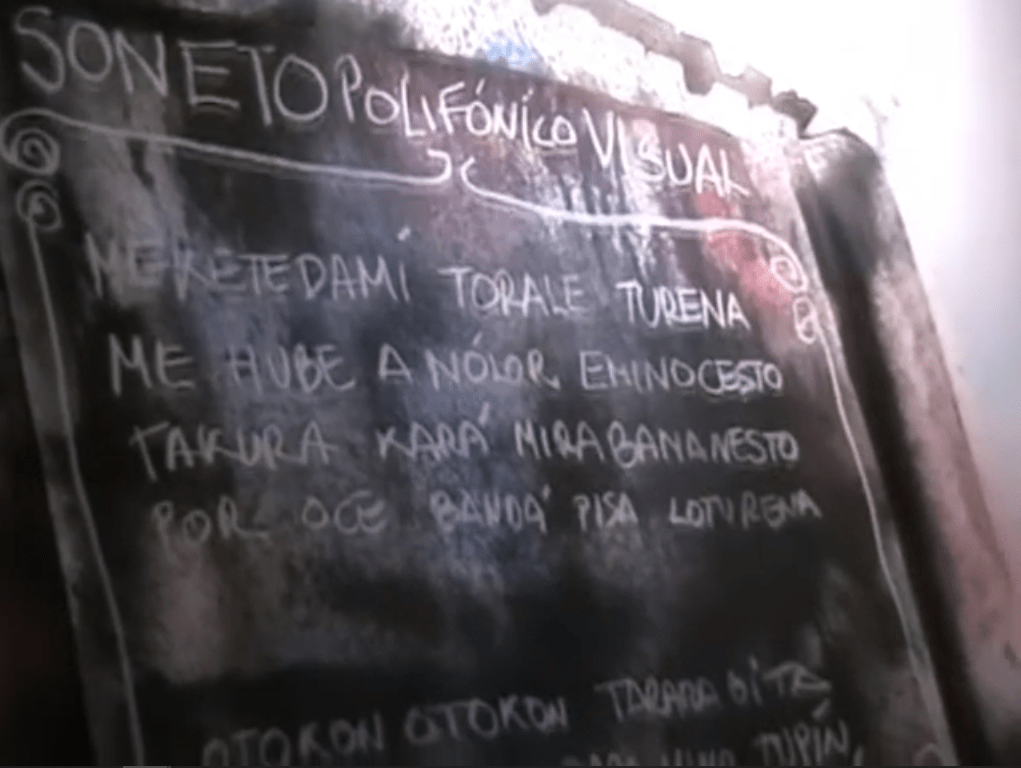 SONETO POLIFÓNICO VISUAL
MEKETEDAMÍ TORALE TURENA
ME HUBE A NÓLOR EMINOCESTO
TAKURA KARÁ MIRABANANESTO
POR OCE BANDÁ PISA LOTURENA
OTOKON OTOKON
TUPÍN,